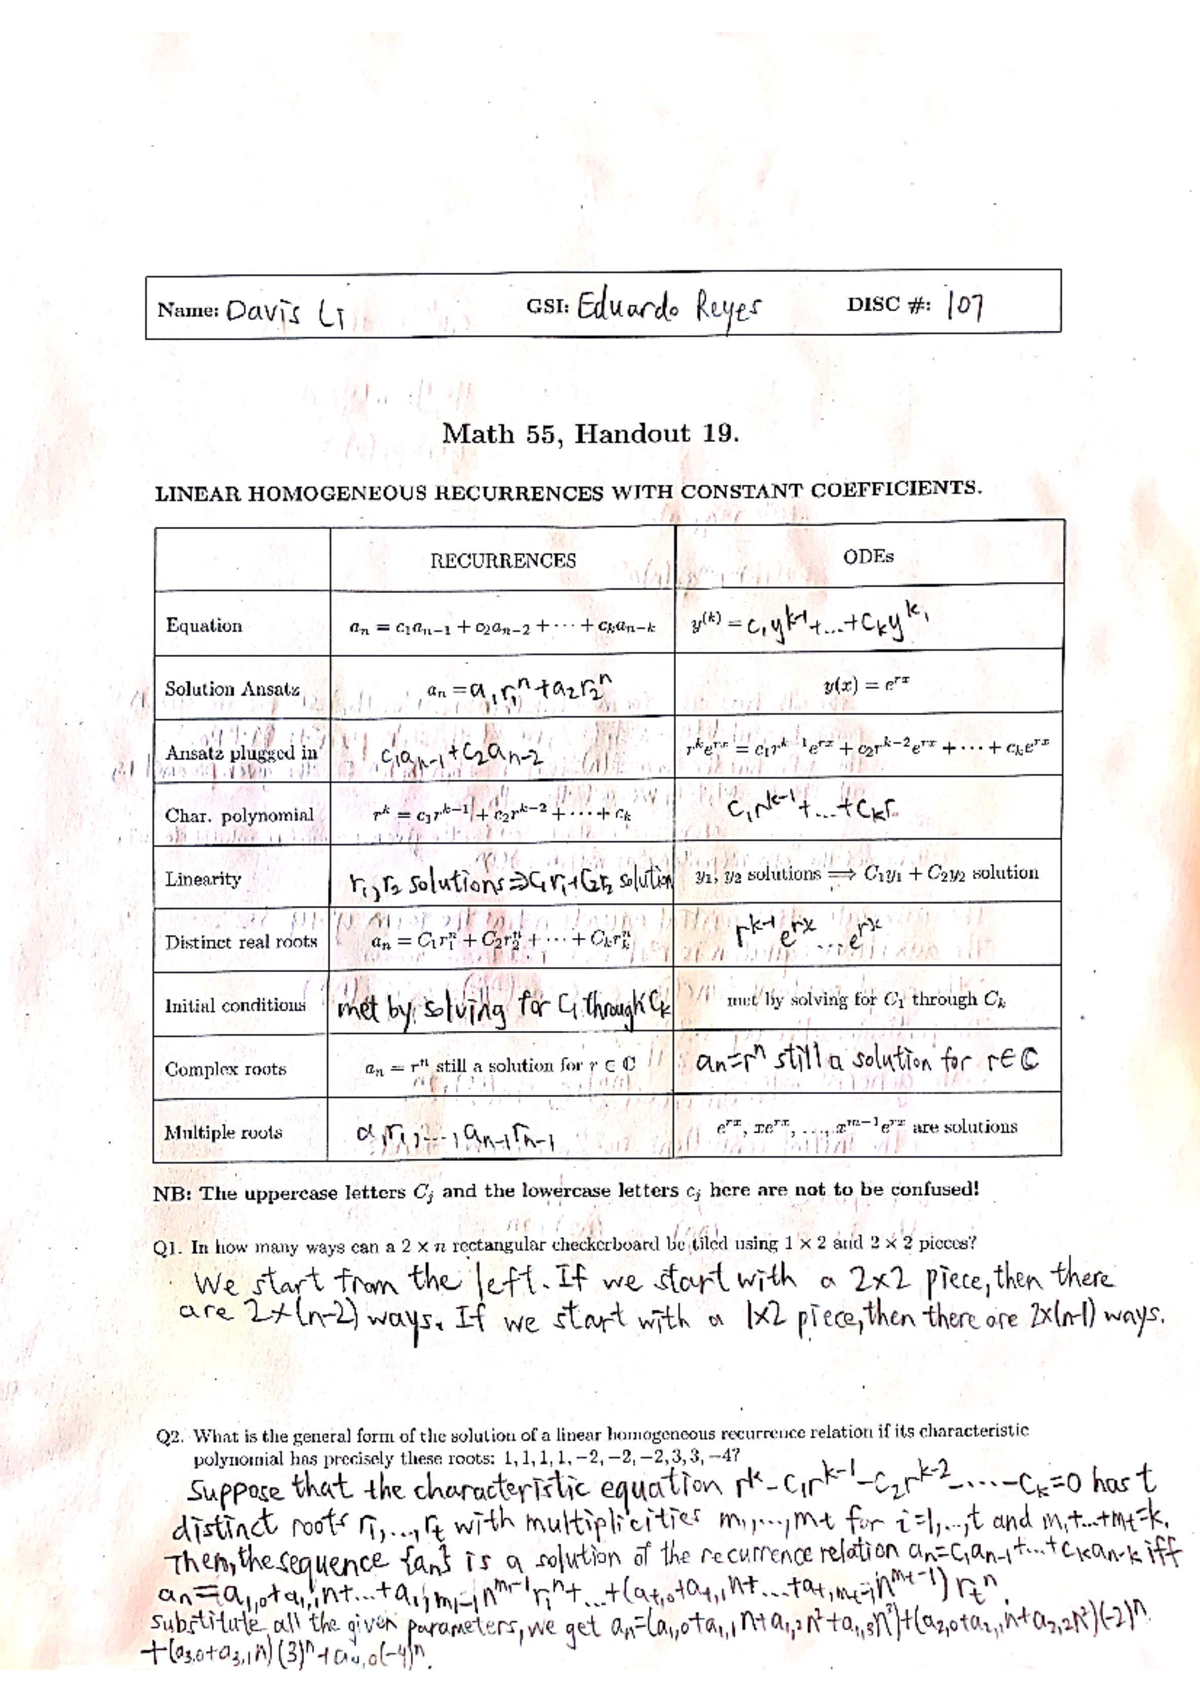 Name: Davis Li GSI: Eduardo Reyes DISC #: 107
Math 55, Handout 19.
LINEAR HOMOGENEOUS RECURRENCES WITH CONSTANT COEFFICIENTS.
RECURRENCES ODEs
Equation aₙ = c₁aₙ₋₁ + c₂aₙ₋₂ + ··· + cₖaₙ₋ₖ y⁽ᵏ⁾ = c₁yᵏ⁻¹+...+cₖyᵏ,
Solution Ansatz aₙ = a₁r₁ⁿ+a₂r₂ⁿ y(x) = eʳˣ
Ansatz plugged in c₁aₙ₋₁+c₂aₙ₋₂ rᵏeʳˣ = c₁rᵏ⁻¹eʳˣ + c₂rᵏ⁻²eʳˣ + ··· + cₖeʳˣ
Char. polynomial rᵏ = c₁rᵏ⁻¹ + c₂rᵏ⁻² + ··· + cₖ c₁rᵏ⁻¹+...+cₖr.
Linearity r₁, r₂ solutions ⇒ C₁r₁+C₂r₂ solution y₁, y₂ solutions ⟹ C₁y₁ + C₂y₂ solution
Distinct real roots aₙ = C₁r₁ⁿ + C₂r₂ⁿ + ··· + Cₖrₖⁿ rᵏ⁻¹eʳˣ ... eʳˣ
Initial conditions met by solving for C₁ through Cₖ met by solving for C₁ through Cₖ
Complex roots aₙ = rⁿ still a solution for r ∈ ℂ aₙ=rⁿ still a solution for r∈ℂ
Multiple roots a₁r₁, ..., aₙ₋₁rₙ₋₁ eʳˣ, xeʳˣ, ..., xᵐ⁻¹eʳˣ are solutions
NB: The uppercase letters Cⱼ and the lowercase letters cⱼ here are not to be confused!
Q1. In how many ways can a 2 × n rectangular checkerboard be tiled using 1 × 2 and 2 × 2 pieces?
We start from the left. If we start with a 2x2 piece, then there
are 2x(n-2) ways. If we start with a 1x2 piece, then there are 2x(n-1) ways.
Q2. What is the general form of the solution of a linear homogeneous recurrence relation if its characteristic
polynomial has precisely these roots: 1, 1, 1, 1, −2, −2, −2, 3, 3, −4?
Suppose that the characteristic equation rᵏ-c₁rᵏ⁻¹-c₂rᵏ⁻²-...-cₖ=0 has t
distinct roots r₁,...,rₜ with multiplicities m₁,...,mₜ for i=1,...,t and m₁+...+mₜ=k.
Then, the sequence {aₙ} is a solution of the recurrence relation aₙ=c₁aₙ₋₁+...+cₖaₙ₋ₖ iff
aₙ=a₁,₀+a₁,₁n+...+a₁,m₁₋₁nᵐ¹⁻¹r₁ⁿ+...+(aₜ,₀+aₜ,₁n+...+aₜ,mₜ₋₁nᵐᵗ⁻¹)rₜⁿ.
Substitute all the given parameters, we get aₙ=(a₁,₀+a₁,₁n+a₁,₂n²+a₁,₃n³)+(a₂,₀+a₂,₁n+a₂,₂n²)(-2)ⁿ
+(a₃,₀+a₃,₁n)(3)ⁿ+a₄,₀(-4)ⁿ.